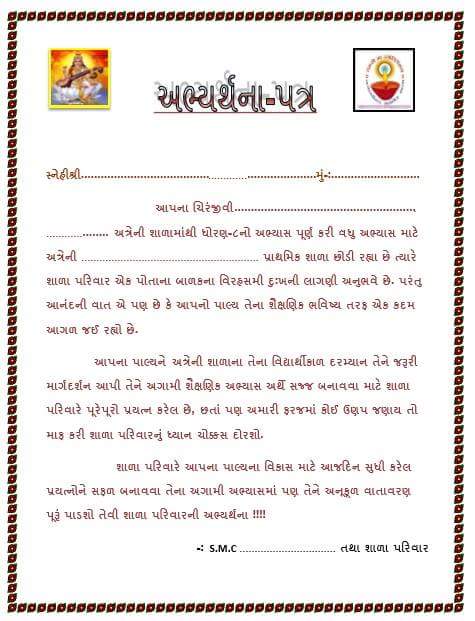 અભ્યર્થના-પત્ર
સ્નેહીશ્રી..................................................................મું-:...........................
આપના ચિરંજીવી.......................................................
................... અત્રેની શાળામાંથી ધોરણ-૮નો અભ્યાસ પૂર્ણ કરી વધુ અભ્યાસ માટે
અત્રેની ........................................................... પ્રાથમિક શાળા છોડી રહ્યા છે ત્યારે
શાળા પરિવાર એક પોતાના બાળકના વિરહસમી દુઃખની લાગણી અનુભવે છે. પરંતુ
આનંદની વાત એ પણ છે કે આપનો પાલ્ય તેના શૈક્ષણિક ભવિષ્ય તરફ એક કદમ
આગળ જઈ રહ્યો છે.
આપના પાલ્યને અત્રેની શાળાના તેના વિદ્યાર્થીકાળ દરમ્યાન તેને જરૂરી
માર્ગદર્શન આપી તેને અગામી શૈક્ષણિક અભ્યાસ અર્થે સજ્જ બનાવવા માટે શાળા
પરિવારે પૂરેપૂરો પ્રયત્ન કરેલ છે, છતાં પણ અમારી ફરજમાં કોઈ ઉણપ જણાય તો
માફ કરી શાળા પરિવારનું ધ્યાન ચોક્સ દોરશો.
શાળા પરિવારે આપના પાલ્યના વિકાસ માટે આજદિન સુધી કરેલ
પ્રયત્નોને સફળ બનાવવા તેના અગામી અભ્યાસમાં પણ તેને અનુકૂળ વાતાવરણ
પૂરું પાડશો તેવી શાળા પરિવારની અભ્યર્થના !!!!
-: S.M.C ................................ તથા શાળા પરિવાર